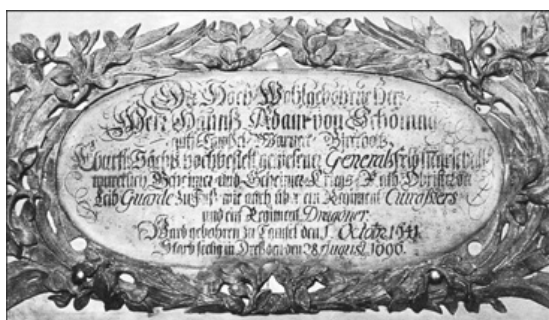 Der Hoch Wohlgebohrne Herr
Herr Hannß Adam von Schöning
auff Tamsel Warnick Birckholtz
Churfl. Sächs. wohlbestelt gewesener Generalfeldtmarschall
würcklich Geheimer und Geheimer Kriegs Rath Obrister von
Leib Guarde zu Fuß wie auch über ein Regiment Curassiers
und ein Regiment Dragoner.
Ward gebohren zu Tamsel den 1. Octobr. 1641.
Starb seelig in Dreßden den 28 August 1696.